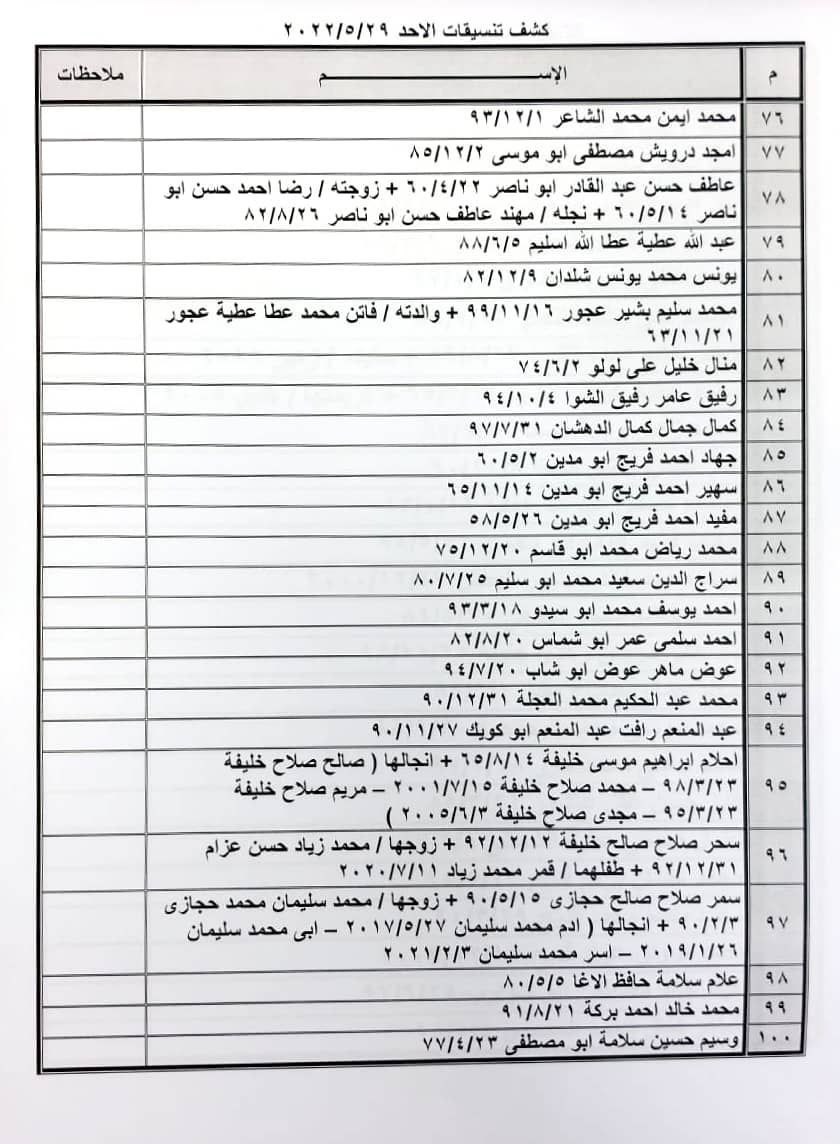 كشف تنسيقات الاحد ٢٠٢٢/٥/٢٩
م الإســـــــــــــــــــم ملاحظات
٧٦ محمد ايمن محمد الشاعر ٩٣/١٢/١
٧٧ امجد درويش مصطفى ابو موسى ٨٥/١٢/٢
٧٨ عاطف حسن عبد القادر ابو ناصر ٦٠/٤/٢٢ + زوجته / رضا احمد حسن ابو
ناصر ٦٠/٥/١٤ + نجله / مهند عاطف حسن ابو ناصر ٨٢/٨/٢٦
٧٩ عبد الله عطية عطا الله اسليم ٨٨/٦/٥
٨٠ يونس محمد يونس شلدان ٨٢/١٢/٩
٨١ محمد سليم بشير عجور ٩٩/١١/١٦ + والدته / فاتن محمد عطا عطية عجور
٦٣/١١/٢١
٨٢ منال خليل على لولو ٧٤/٦/٢
٨٣ رفيق عامر رفيق الشوا ٩٤/١٠/٤
٨٤ كمال جمال كمال الدهشان ٩٧/٧/٣١
٨٥ جهاد احمد فريج ابو مدين ٦٠/٥/٢
٨٦ سهير احمد فريج ابو مدين ٦٥/١١/١٤
٨٧ مفيد احمد فريج ابو مدين ٥٨/٥/٢٦
٨٨ محمد رياض محمد ابو قاسم ٧٥/١٢/٢٠
٨٩ سراج الدين سعيد محمد ابو سليم ٨٠/٧/٢٥
٩٠ احمد يوسف محمد ابو سيدو ٩٣/٣/١٨
٩١ احمد سلمى عمر ابو شماس ٨٢/٨/٢٠
٩٢ عوض ماهر عوض ابو شاب ٩٤/٧/٢٠
٩٣ محمد عبد الحكيم محمد العجلة ٩٠/١٢/٣١
٩٤ عبد المنعم رافت عبد المنعم ابو كويك ٩٠/١١/٢٧
٩٥ احلام ابراهيم موسى خليفة ٦٥/٨/١٤ + انجالها ( صالح صلاح خليفة
٩٨/٣/٢٣ – محمد صلاح خليفة ٢٠٠١/٧/١٥ – مريم صلاح خليفة
٩٥/٣/٢٣ – مجدى صلاح خليفة ٢٠٠٥/٦/٣ )
٩٦ سحر صلاح صالح خليفة ٩٢/١٢/١٢ + زوجها / محمد زياد حسن عزام
٩٢/١٢/٣١ + طفلهما / قمر محمد زياد ٢٠٢٠/٧/١١
٩٧ سمر صلاح صالح حجازى ٩٠/٥/١٥ + زوجها / محمد سليمان محمد حجازى
٩٠/٢/٣ + انجالها ( ادم محمد سليمان ٢٠١٧/٥/٢٧ – ابى محمد سليمان
٢٠١٩/١/٢٦ – اسر محمد سليمان ٢٠٢١/٢/٣
٩٨ علام سلامة حافظ الاغا ٨٠/٥/٥
٩٩ محمد خالد احمد بركة ٩١/٨/٢١
١٠٠ وسيم حسين سلامة ابو مصطفى ٧٧/٤/٢٣